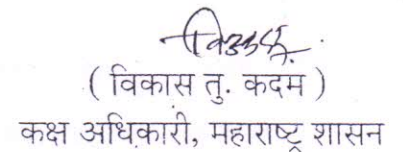 ( विकास तु. कदम )
कक्ष अधिकारी, महाराष्ट्र शासन